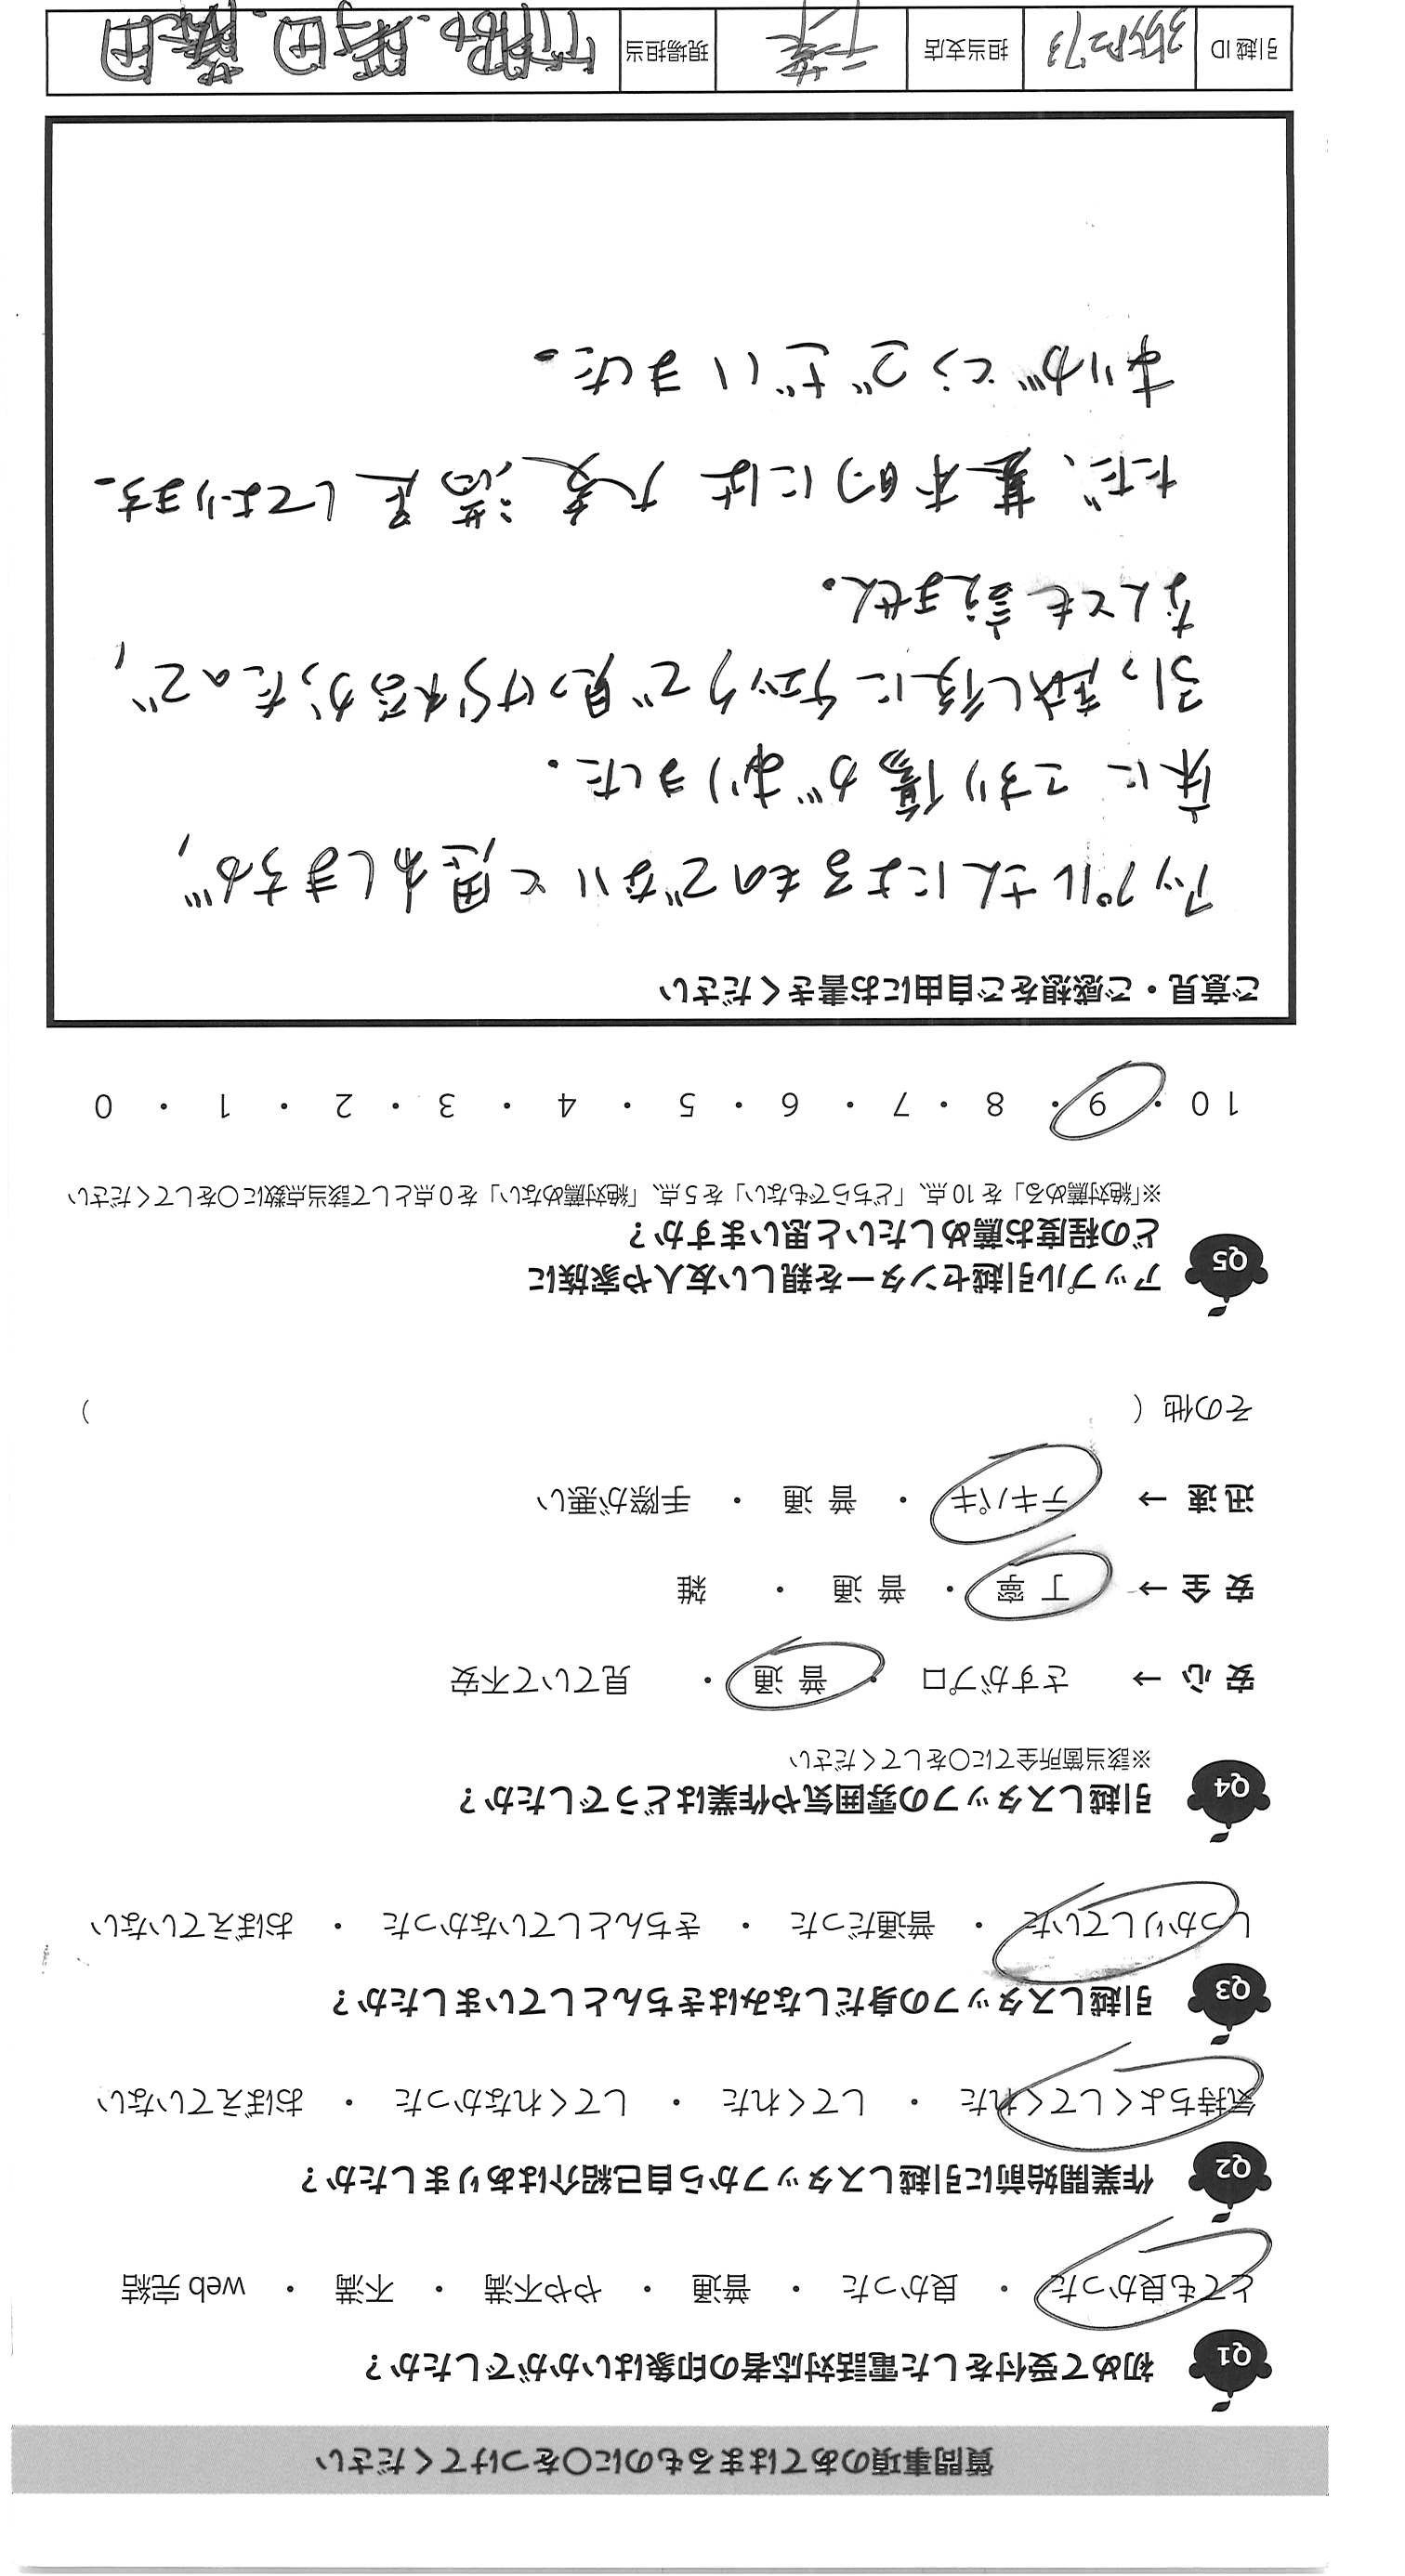 質問事項のあてはまるものに〇をつけてください
Q1 初めて受付をした電話対応者の印象はいかがでしたか?
とても良かった ・ 良かった ・ 普通 ・ やや不満 ・ 不満 ・ web 完結
Q2 作業開始前に引越しスタッフから自己紹介はありましたか?
気持ちよくしてくれた ・ してくれた ・ してくれなかった ・ おぼえていない
Q3 引越しスタッフの身だしなみはきちんとしていましたか?
しっかりしていた ・ 普通だった ・ きちんとしていなかった ・ おぼえていない
Q4 引越しスタッフの雰囲気や作業はどうでしたか?
※該当箇所全てに〇をしてください
安心 → さすがプロ ・ 普通 ・ 見ていて不安
安全 → 丁寧 ・ 普通 ・ 雑
迅速 → テキパキ ・ 普通 ・ 手際が悪い
その他 ( )
Q5 アップル引越センターを親しい友人や家族に
どの程度お薦めしたいと思いますか?
※「絶対薦める」を10点、「どちらでもない」を5点、「絶対薦めない」を0点として該当点数に〇をしてください
10 ・ 9 ・ 8 ・ 7 ・ 6 ・ 5 ・ 4 ・ 3 ・ 2 ・ 1 ・ 0
ご意見・ご感想をご自由にお書きください
アップルさんによるものでないと思われますが、
床に こすり傷がありました。
引っ越し後にチェックで見つけられなかったので、
なんとも言えません。
ただ、基本的には大変満足しております。
ありがとうございました。
引越ID 担当支店 千葉 現場担当